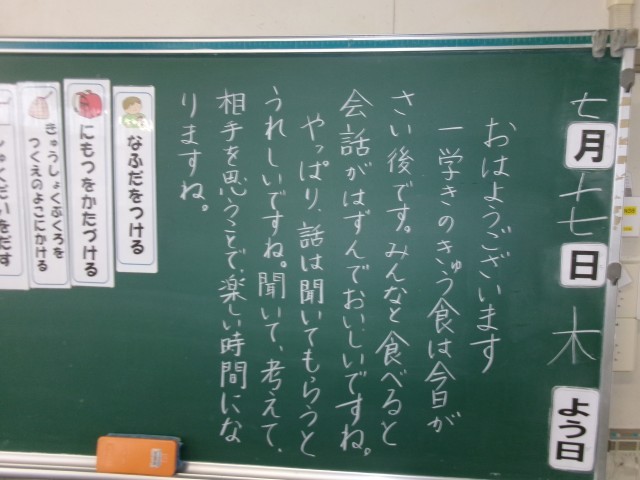 七月十七日木よう日
おはようございます
一学きのきゅう食は今日が
さい後です。みんなと食べると
会話がはずんでおいしいですね。
やっぱり、話は聞いてもらうと
うれしいですね。聞いて、考えて、
相手を思うことで、楽しい時間にな
りますね。
なふだをつける
にもつをかたづける
きゅうしょくぶくろを
つくえのよこにかける
しゅくだいをだす